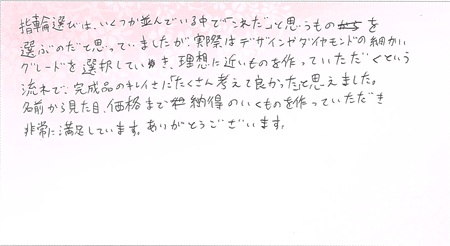 指輪選びは、いくつか並んでいる中で「これだ」と思うものを
選ぶのだと思っていましたが、実際はデザインやダイヤモンドの細かい
グレードを選択していき、理想に近いものを作っていただくという
流れで、完成品のキレイさに「たくさん考えて良かった」と思えました。
名前から見た目、価格まで納得のいくものを作っていただき
非常に満足しています。ありがとうございます。